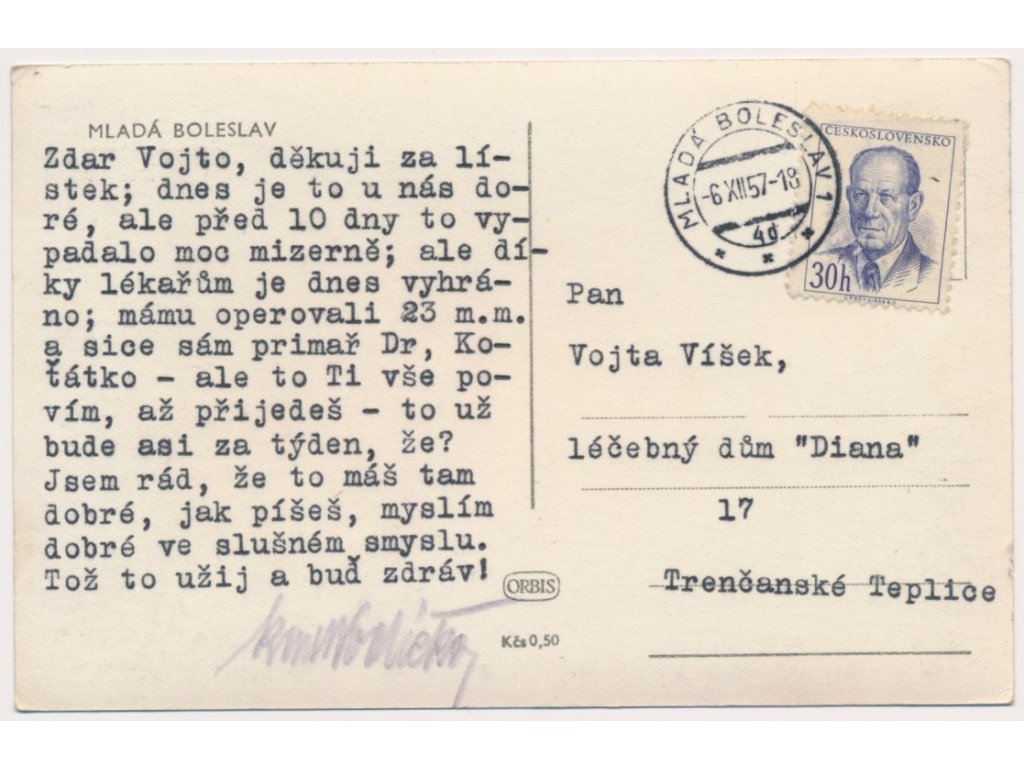 MLADÁ BOLESLAV
Zdar Vojto, děkuji za lí-
stek; dnes je to u nás do-
ré, ale před 10 dny to vy-
padalo moc mizerně; ale dí-
ky lékařům je dnes vyhrá-
no; mámu operovali 23 m.m.
a sice sám primař Dr, Ko-
ťátko - ale to Ti vše po-
vím, až přijedeš - to už
bude asi za týden, že?
Jsem rád, že to máš tam
dobré, jak píšeš, myslím
dobré ve slušném smyslu.
Tož to užij a buď zdráv!
ORBIS
Kčs 0,50
MLADÁ BOLESLAV 1
-6.XII.57-18
4d
ČESKOSLOVENSKO
30h
Pan
Vojta Víšek,
léčebný dům "Diana"
17
Trenčanské Teplice